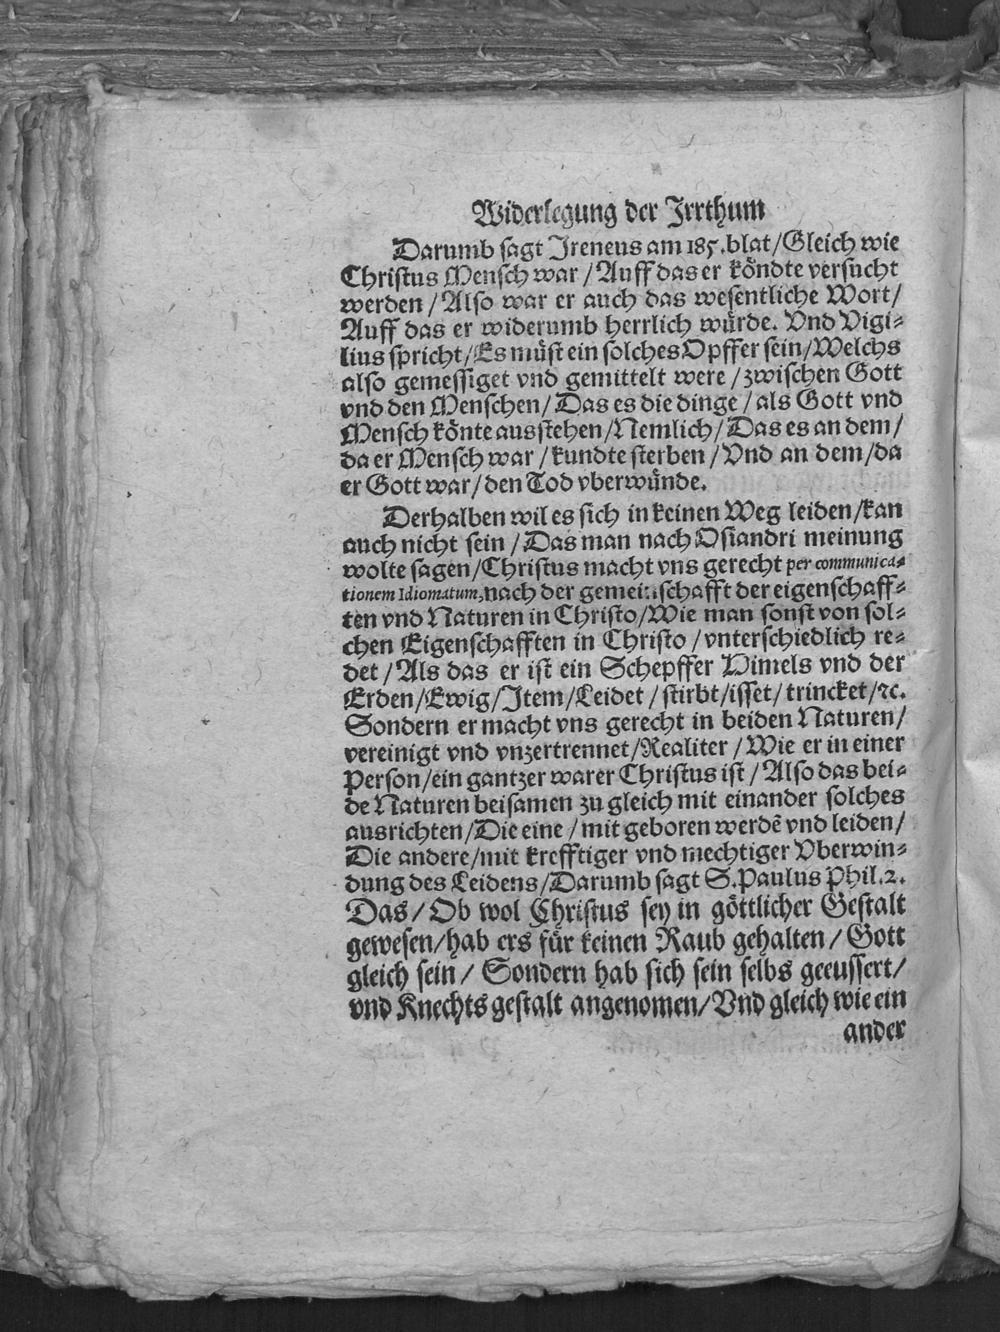 Widerlegung der Jrrthum
Darumb sagt Jreneus am 185. blat/Gleich wie
Christus Mensch war/Auff das er köndte versucht
werden/Also war er auch das wesentliche Wort/
Auff das er widerumb herrlich würde. Vnd Vigi-
lius spricht/Es müst ein solches Opffer sein/Welchs
also gemessiget vnd gemittelt were/zwischen Gott
vnd den Menschen/Das es die dinge/als Gott vnd
Mensch könte ausstehen/Nemlich/Das es an dem/
da er Mensch war/kundte sterben/Vnd an dem/da
er Gott war/den Tod vberwünde.
Derhalben wil es sich in keinen Weg leiden/kan
auch nicht sein/Das man nach Osiandri meinung
wolte sagen/Christus macht vns gerecht per communica-
tionem Idiomatum, nach der gemeinschafft der eigenschaff-
ten vnd Naturen in Christo/Wie man sonst von sol-
chen Eigenschafften in Christo/vnterschiedlich re-
det/Als das er ist ein Schepffer Himels vnd der
Erden/Ewig/Jtem/Leidet/stirbt/isset/trincket/ꝛc.
Sondern er macht vns gerecht in beiden Naturen/
vereinigt vnd vnzertrennet/Realiter/Wie er in einer
Person/ein gantzer warer Christus ist/Also das bei-
de Naturen beisamen zu gleich mit einander solches
ausrichten/Die eine/mit geboren werdẽ vnd leiden/
Die andere/mit krefftiger vnd mechtiger Vberwin-
dung des Leidens/Darumb sagt S. Paulus Phil. 2.
Das/Ob wol Christus sey in göttlicher Gestalt
gewesen/hab ers für keinen Raub gehalten/Gott
gleich sein/Sondern hab sich sein selbs geeussert/
vnd Knechts gestalt angenomen/Vnd gleich wie ein
ander